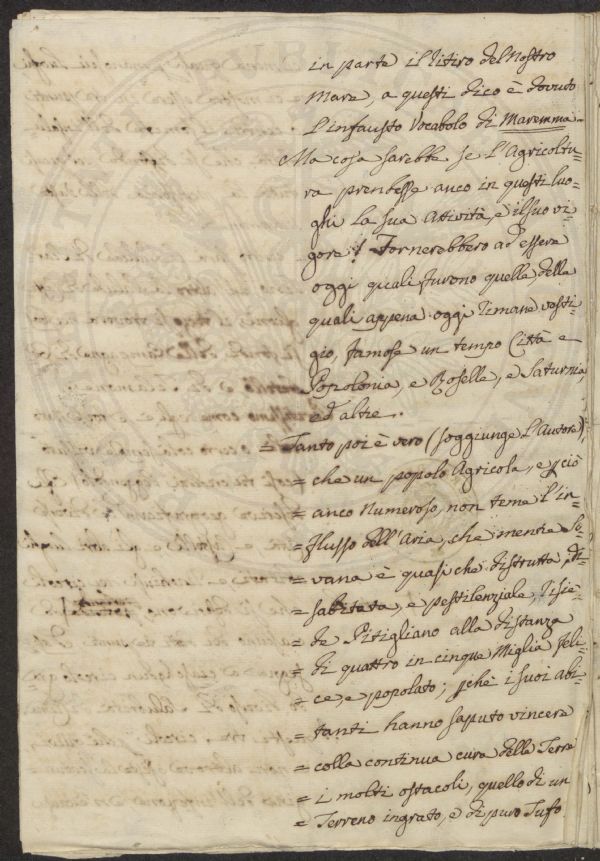 in parte il ritiro del Nostro
Mare, a questi dico è dovuto
l'infausto Vocabolo di Maremma.
Ma cosa sarebbe se l'Agricoltu-
ra prendesse anco in questi luo-
ghi la sua attività, e il suo vi-
gore! Tornerebbero ad essere
oggi quali furono quelle della
quali appena oggi rimane vesti-
gio, famose un tempo Città e
Popolonia, e Roselle, e Saturnia,
ed altre.
= Tanto poi è vero (soggiunge l'Autore),
= che un popolo Agricola, e pciò
= anco Numeroso, non teme l'in-
= flusso dell'Aria, che mentre So-
= vana è quasi che distrutta, di-
= sabitata, e pestilenziale, risie-
= de Pitigliano alla distanza
= di quattro in cinque Miglia feli-
= ce, e popolato; pchè i suoi abi-
= tanti hanno saputo vincere
= colla continua cura della Terra
= i molti ostacoli, quello di un
= Terreno ingrato, e di puro Tufo